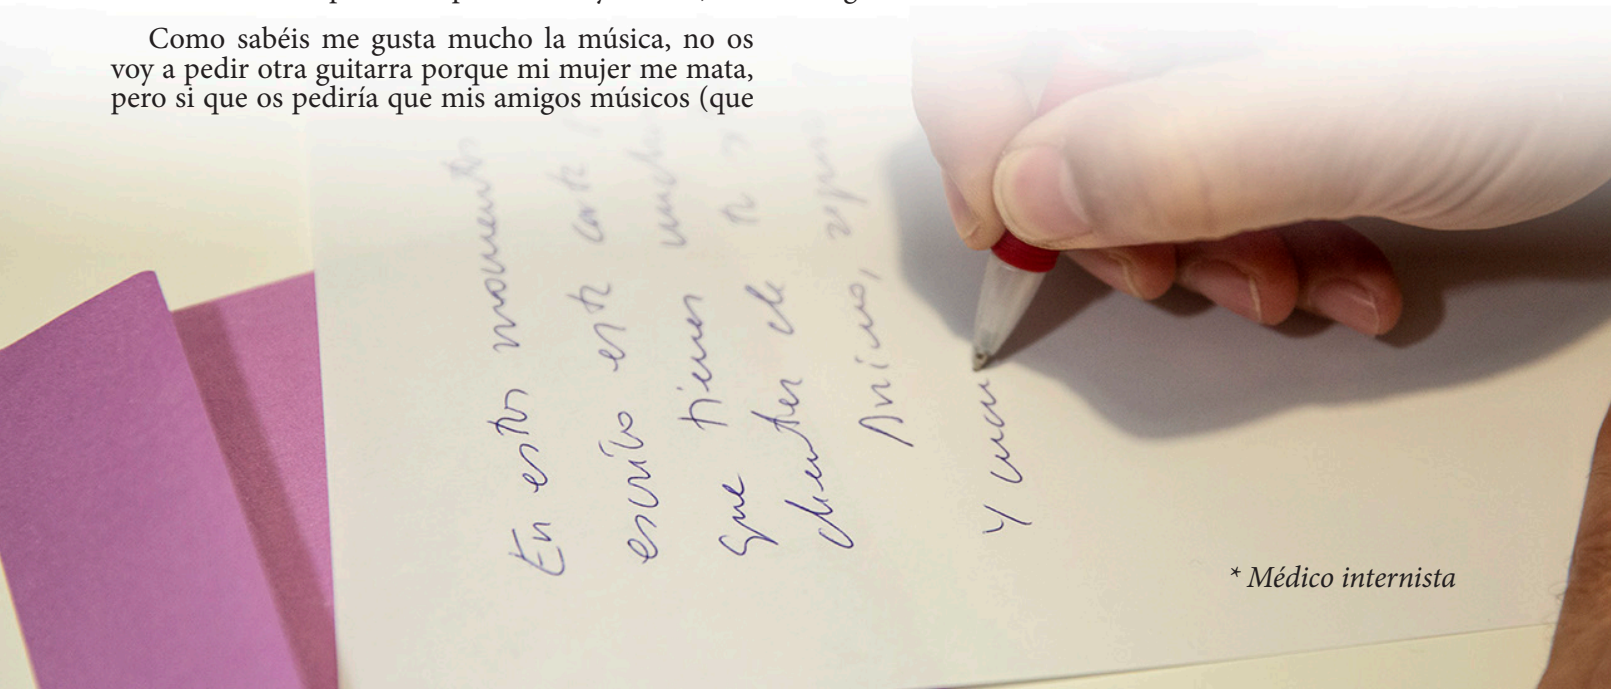 Como sabéis me gusta mucho la música, no os
voy a pedir otra guitarra porque mi mujer me mata,
pero si que os pediría que mis amigos músicos (que
En estos momentos
escribo esta carta
que tienes mucha
Animo,
Y
* Médico internista